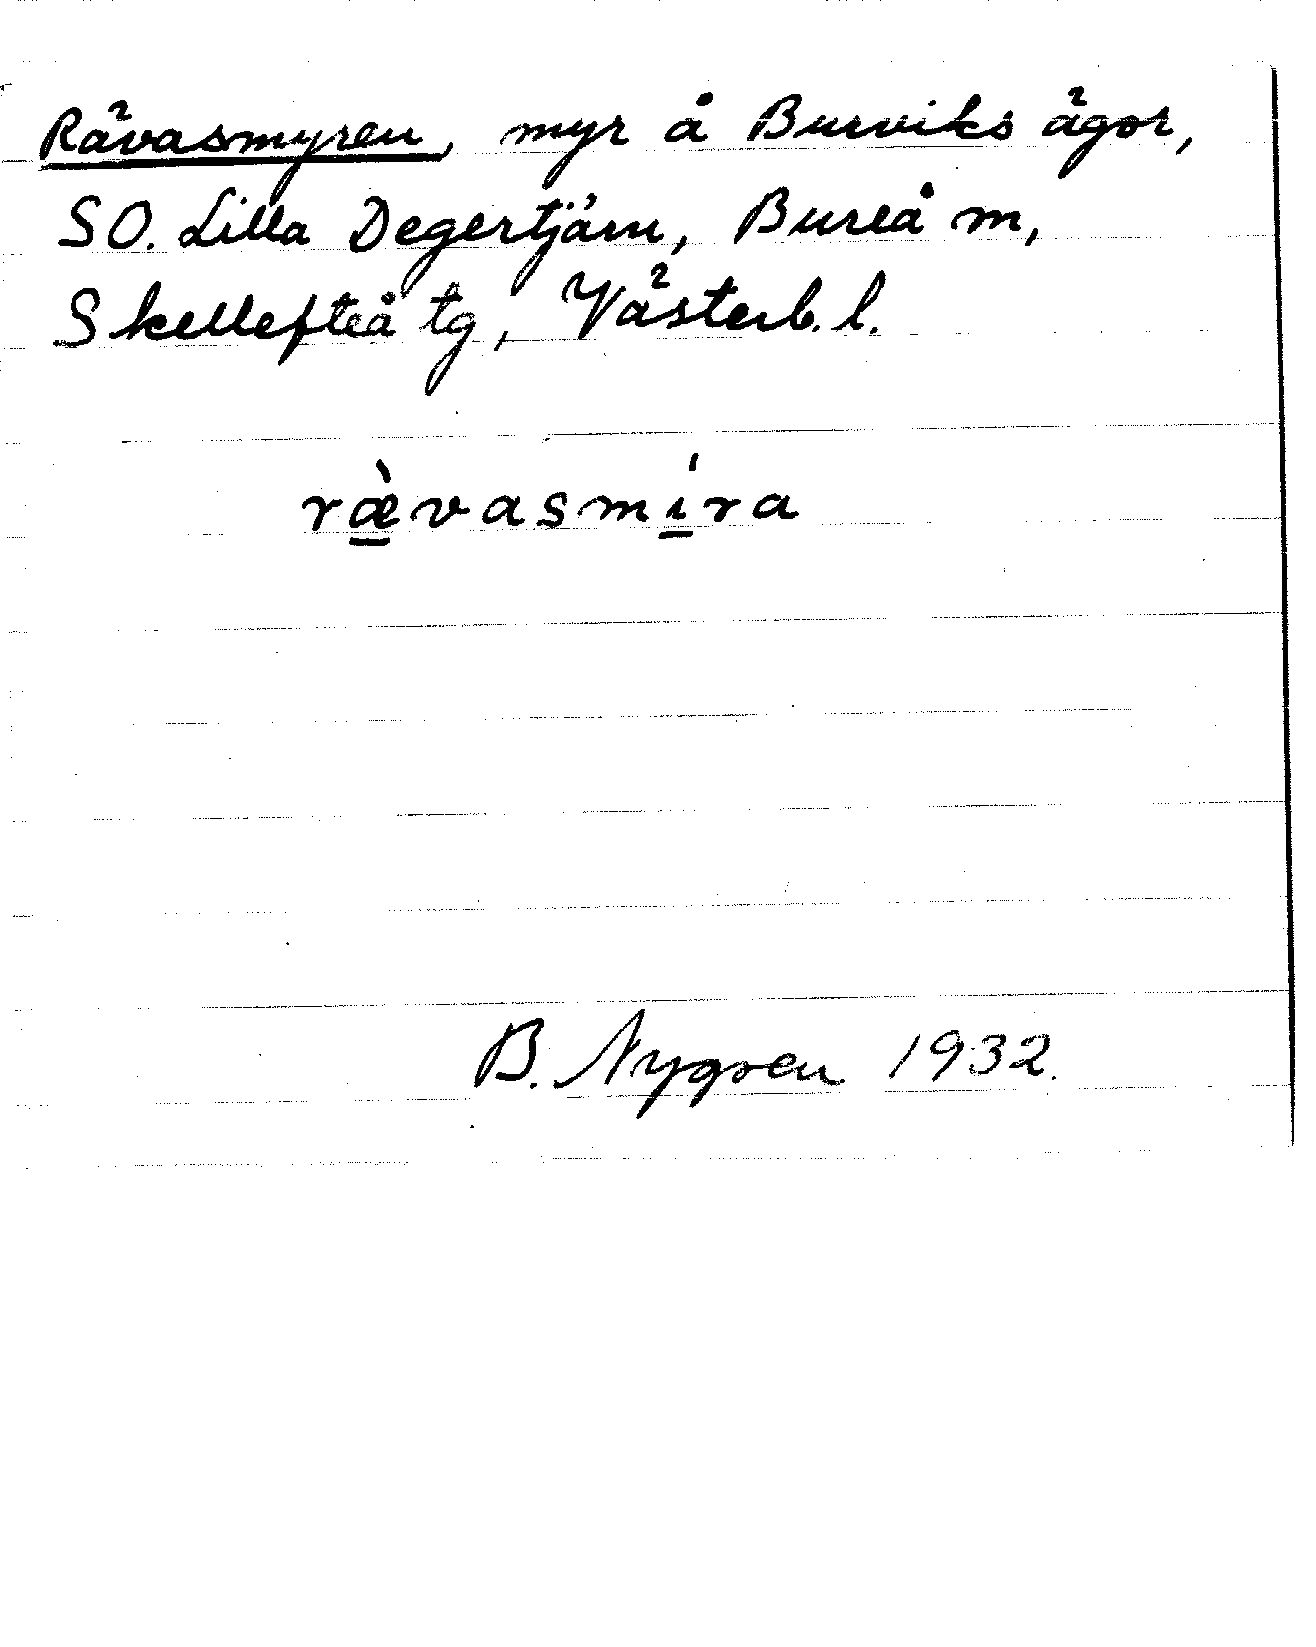 Rävasmyren, myr å Bureviks ägor,
SO. Lilla Degertjärn, Bureå m,
Skellefteå tg, Västerb. l.
ræ̀vasmíra
B. Nygren 1932.